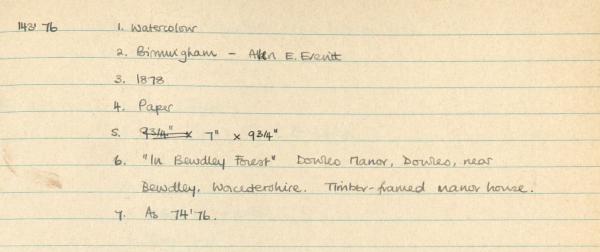 143'76 1. Watercolour
2. Birmingham - Allen E. Everitt
3. 1878
4. Paper
5. 9 3/4" x 7" x 9 3/4"
6. "In Bewdley Forest" Dowles Manor, Dowles, near
Bewdley, Worcestershire. Timber-framed manor house.
7. As 74'76.